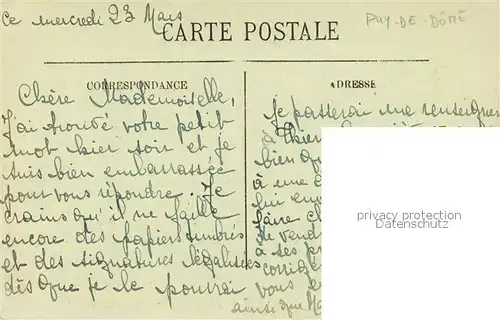 Ce mercredi 23 Mars
PUY-DE-DÔME
CARTE POSTALE
CORRESPONDANCE
ADRESSE
Chère Mademoiselle,
J'ai trouvé votre petit
mot hier soir et je
suis bien embarrassée
pour vous répondre. Je
crains qu'il ne faille
encore des papiers timbrés
et des signatures légalisées
dès que je le pourrai
je passerai me renseigner
à Thiers
bien
à une
lui
faire
de
à ses
corrigé
vous
ainsi que
privacy protection
Datenschutz